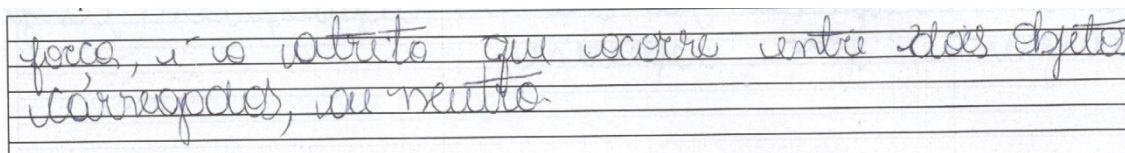 força, é o atrito que ocorre entre dois objeto
carregados, ou neutro.